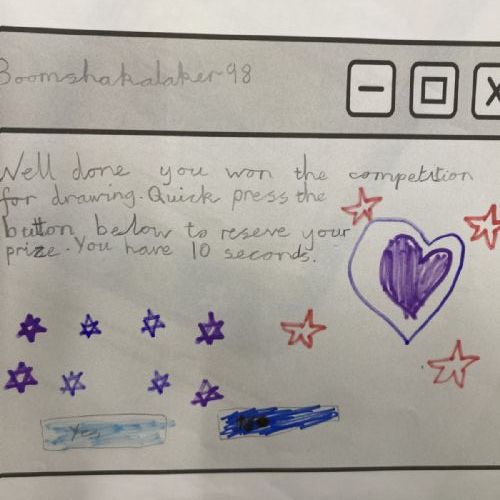 Boomshakalaker98
Well done you won the competition
for drawing. Quick press the
button below to reseve your
prize. You have 10 seconds.
Yes